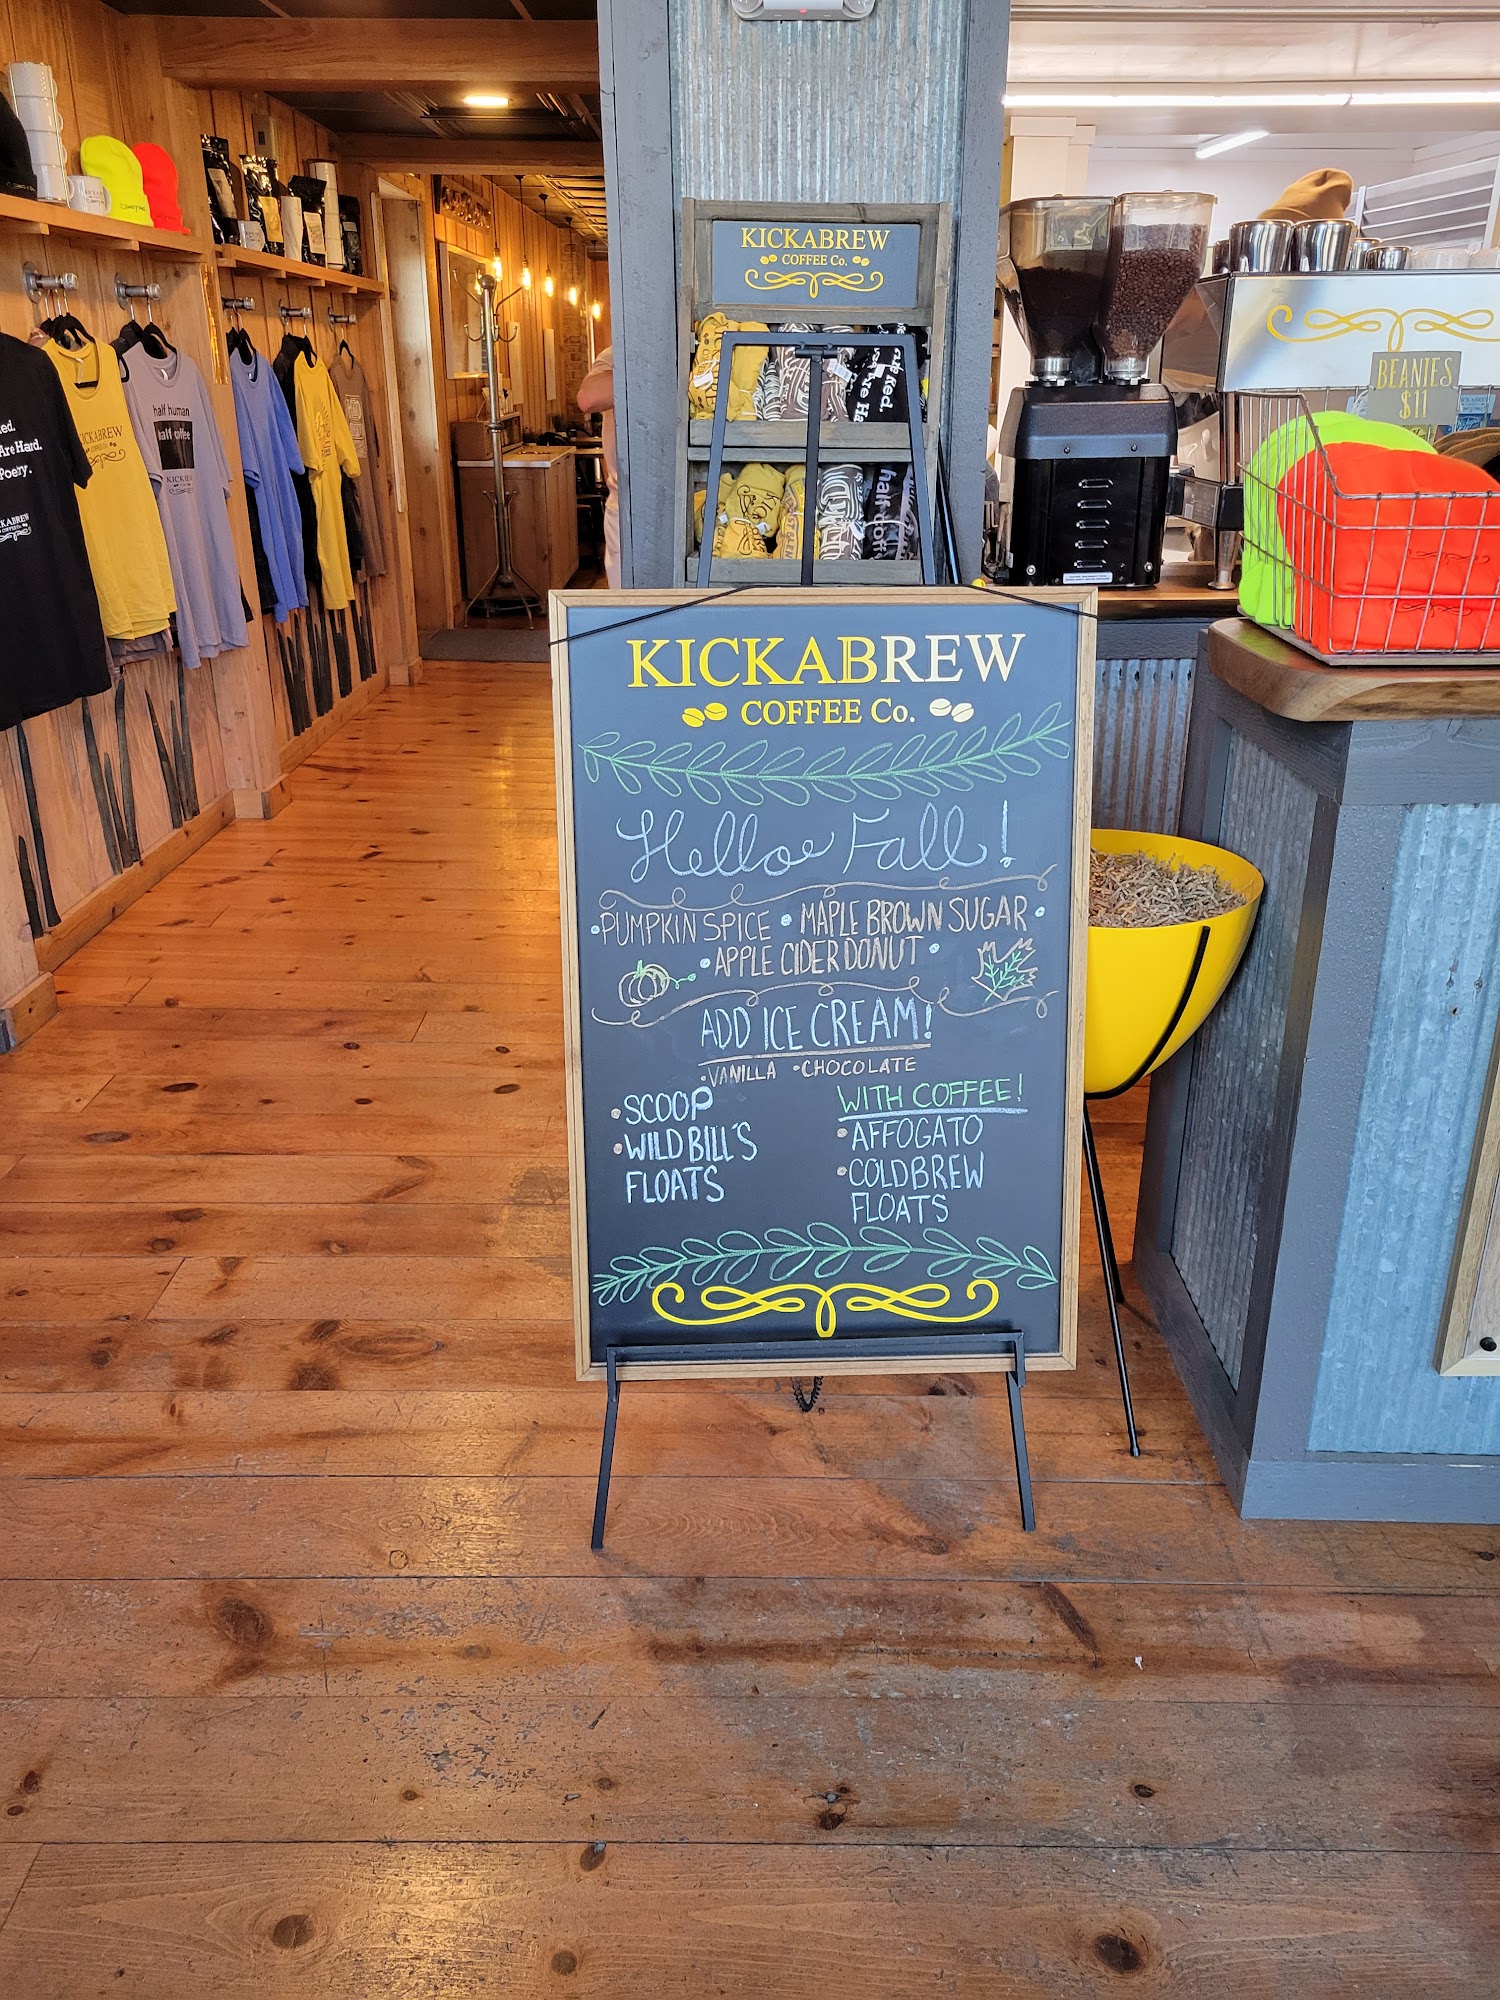 KICKABREW
COFFEE Co.
BEANIES
$11
half human
half coffee
KICKABREW
Are Hard.
Poetry.
KICKABREW
COFFEE Co.
Hello Fall!
• PUMPKIN SPICE • MAPLE BROWN SUGAR •
• APPLE CIDER DONUT •
ADD ICE CREAM!
• VANILLA • CHOCOLATE
• SCOOP
• WILD BILL'S
FLOATS
WITH COFFEE!
• AFFOGATO
• COLDBREW
FLOATS